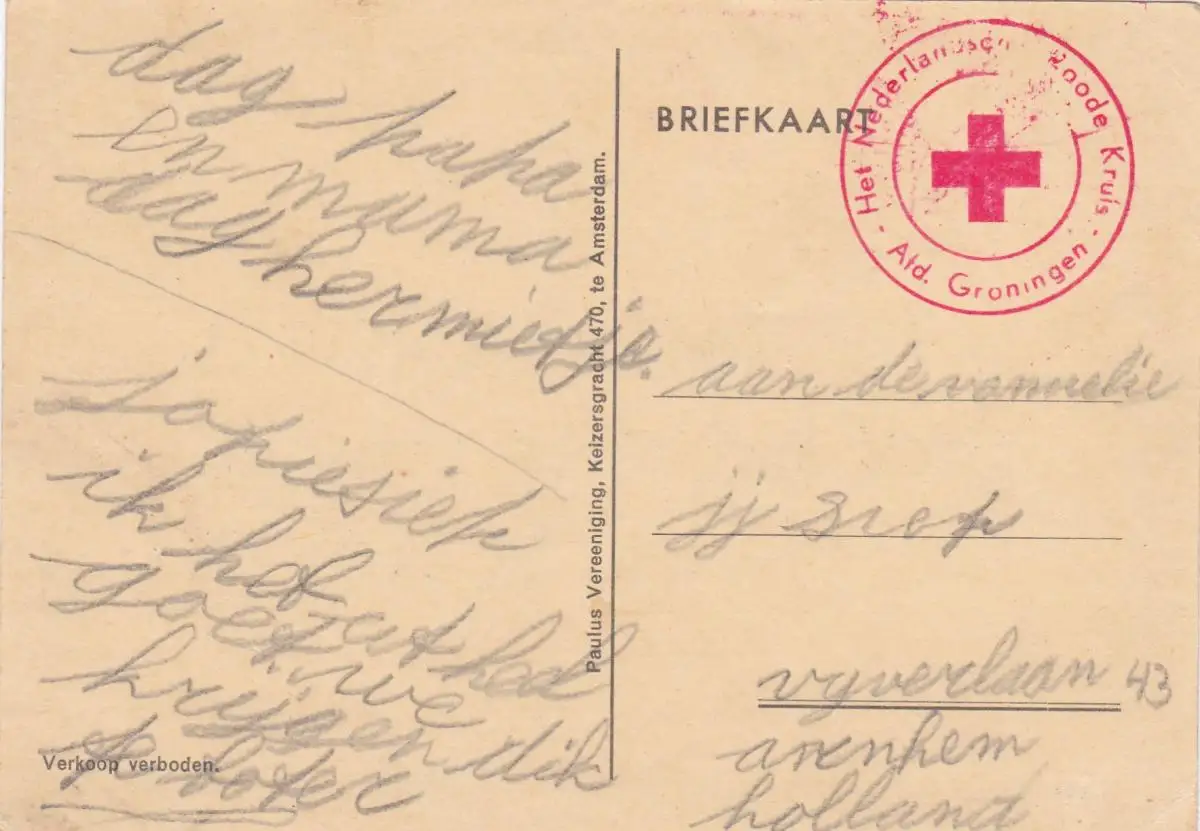 dag papa
en mama
dag hermietje.
Jopiesiek
ik heb ut hed
goet we
krijgen dik
boter
Verkoop verboden.
Paulus Vereeniging, Keizersgracht 470, te Amsterdam.
BRIEFKAART
Het Nederlandsch Roode Kruis
- Afd. Groningen -
aan de vamielie
jj
vyverlaan 43
arenhem
holland